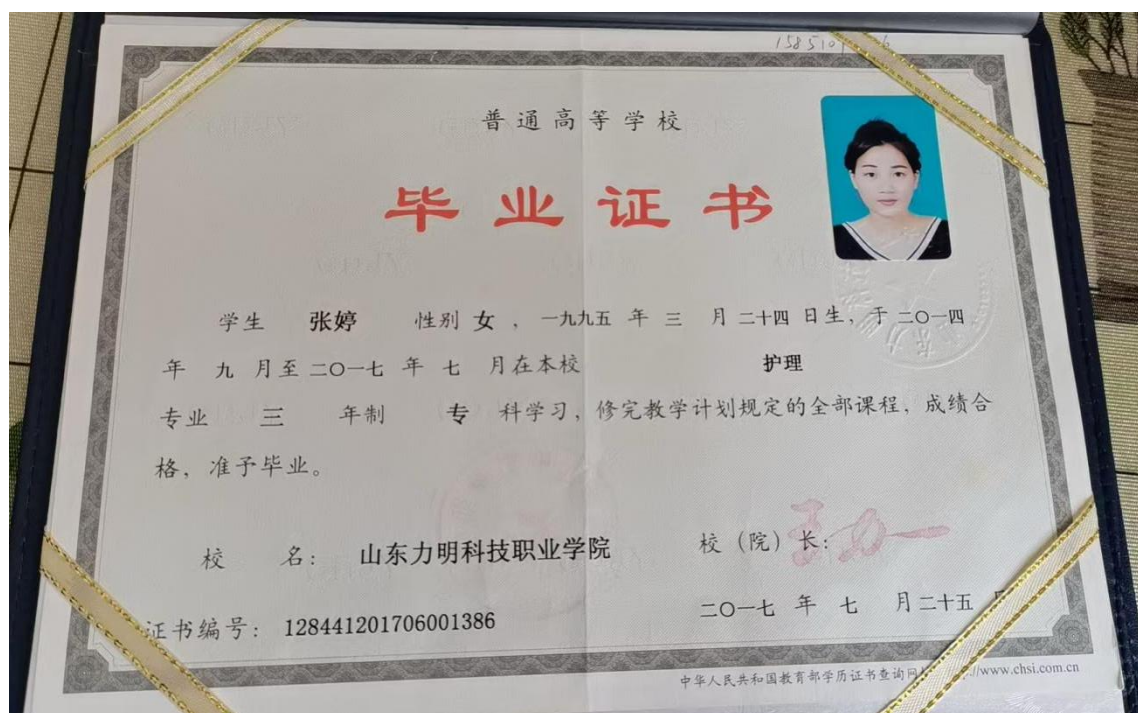 普通高等学校
毕业证书
学生 张婷 性别 女 ，一九九五 年 三 月 二十四 日生，于 二〇一四
年 九 月至 二〇一七 年 七 月在本校 护理
专业 三 年制 专 科学习，修完教学计划规定的全部课程，成绩合
格，准予毕业。
校 名： 山东力明科技职业学院 校（院）长：
证书编号： 128441201706001386 二〇一七 年 七 月二十五
中华人民共和国教育部学历证书查询网 //www.chsi.com.cn